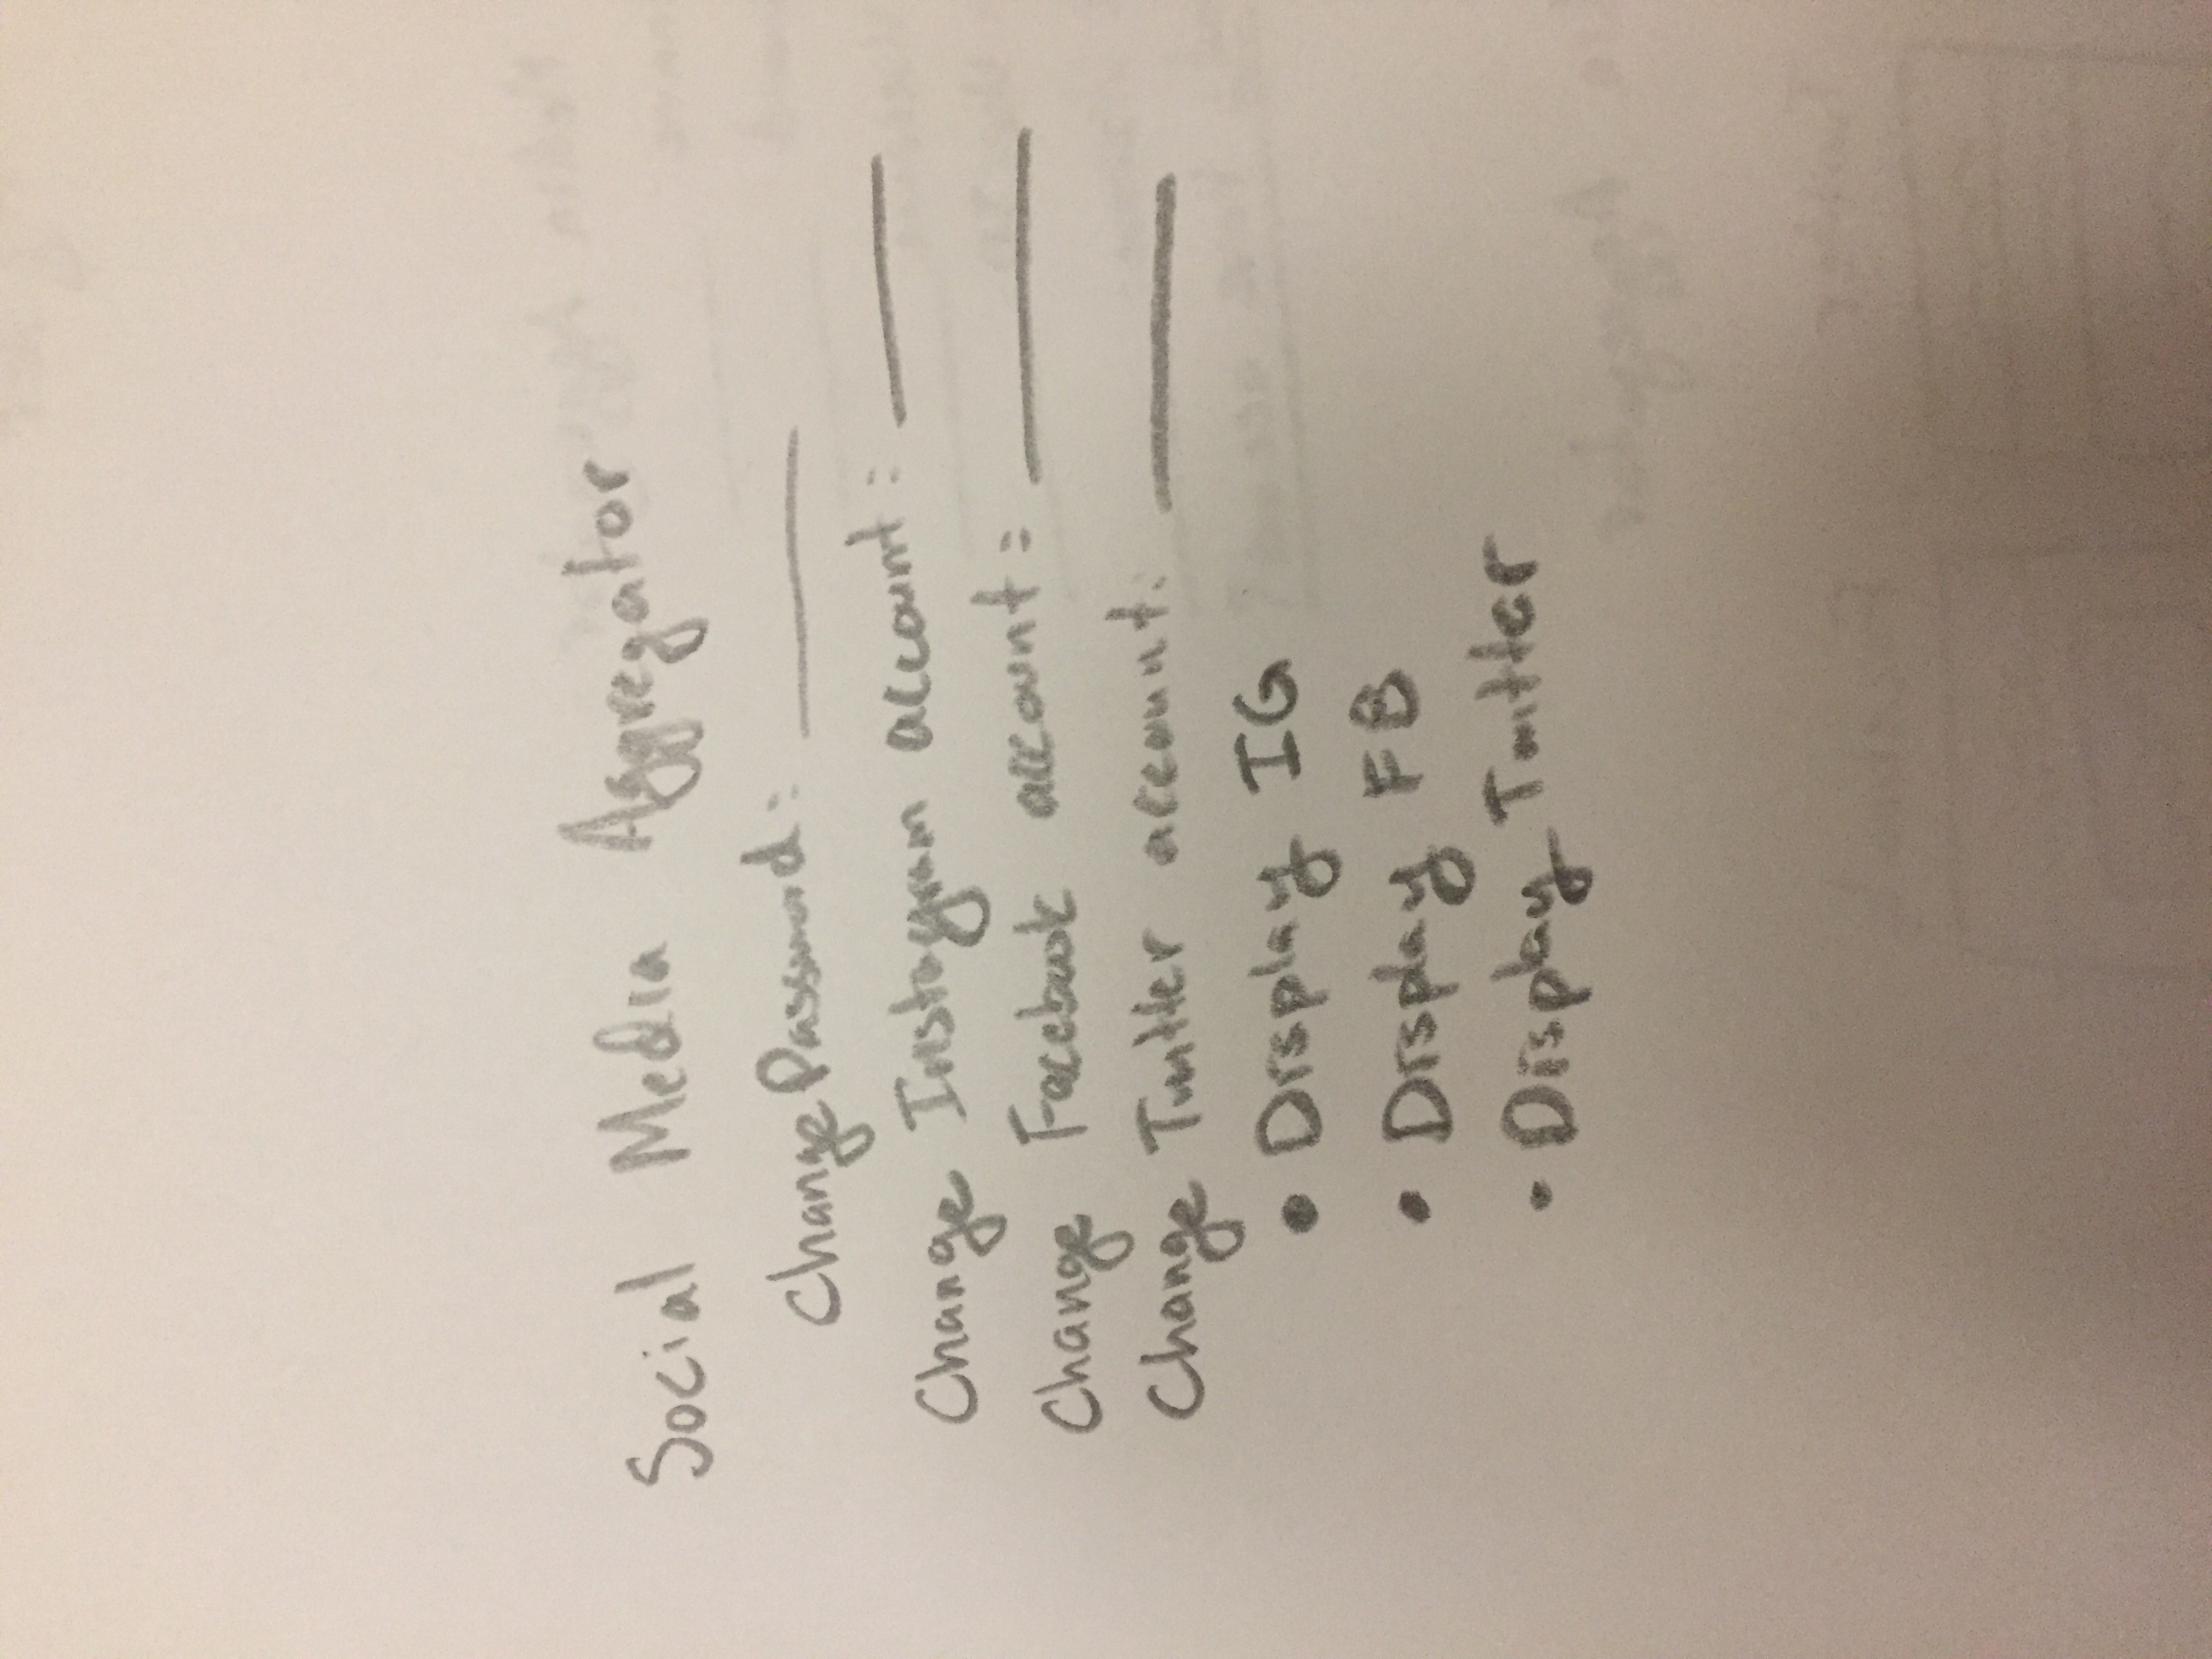 Social Media Aggregator
Change Password: ______
Change Instagram account: ______
Change Facebook account: ______
Change Twitter account: ______
• Display IG
• Display FB
• Display Twitter